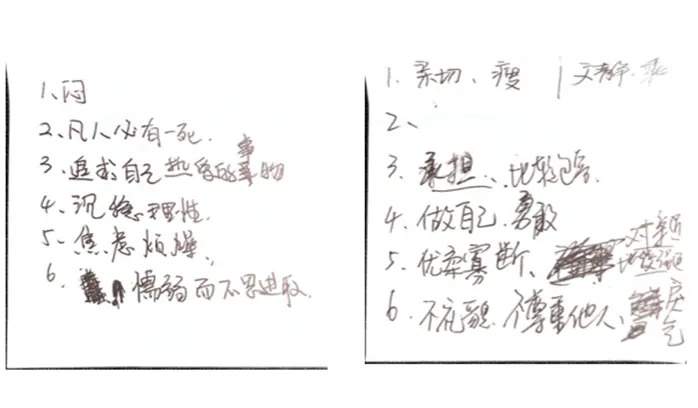 1、闷
2、凡人必有一死.
3、追求自己热爱的事物
4、沉稳理性.
5、焦虑烦燥、
6、懦弱而不思进取.
1、亲切、瘦 文静.乖
2、
3、承担、比较包容.
4、做自己.勇敢
5、优柔寡断、对亲近
6、不礼貌.不尊重他人、戾气